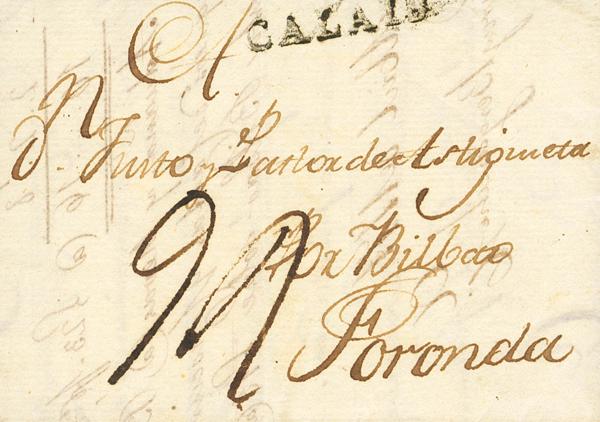 CALAIS
A
Dn. Justo y Pastor de Astiguieta
Por Bilbao
Foronda